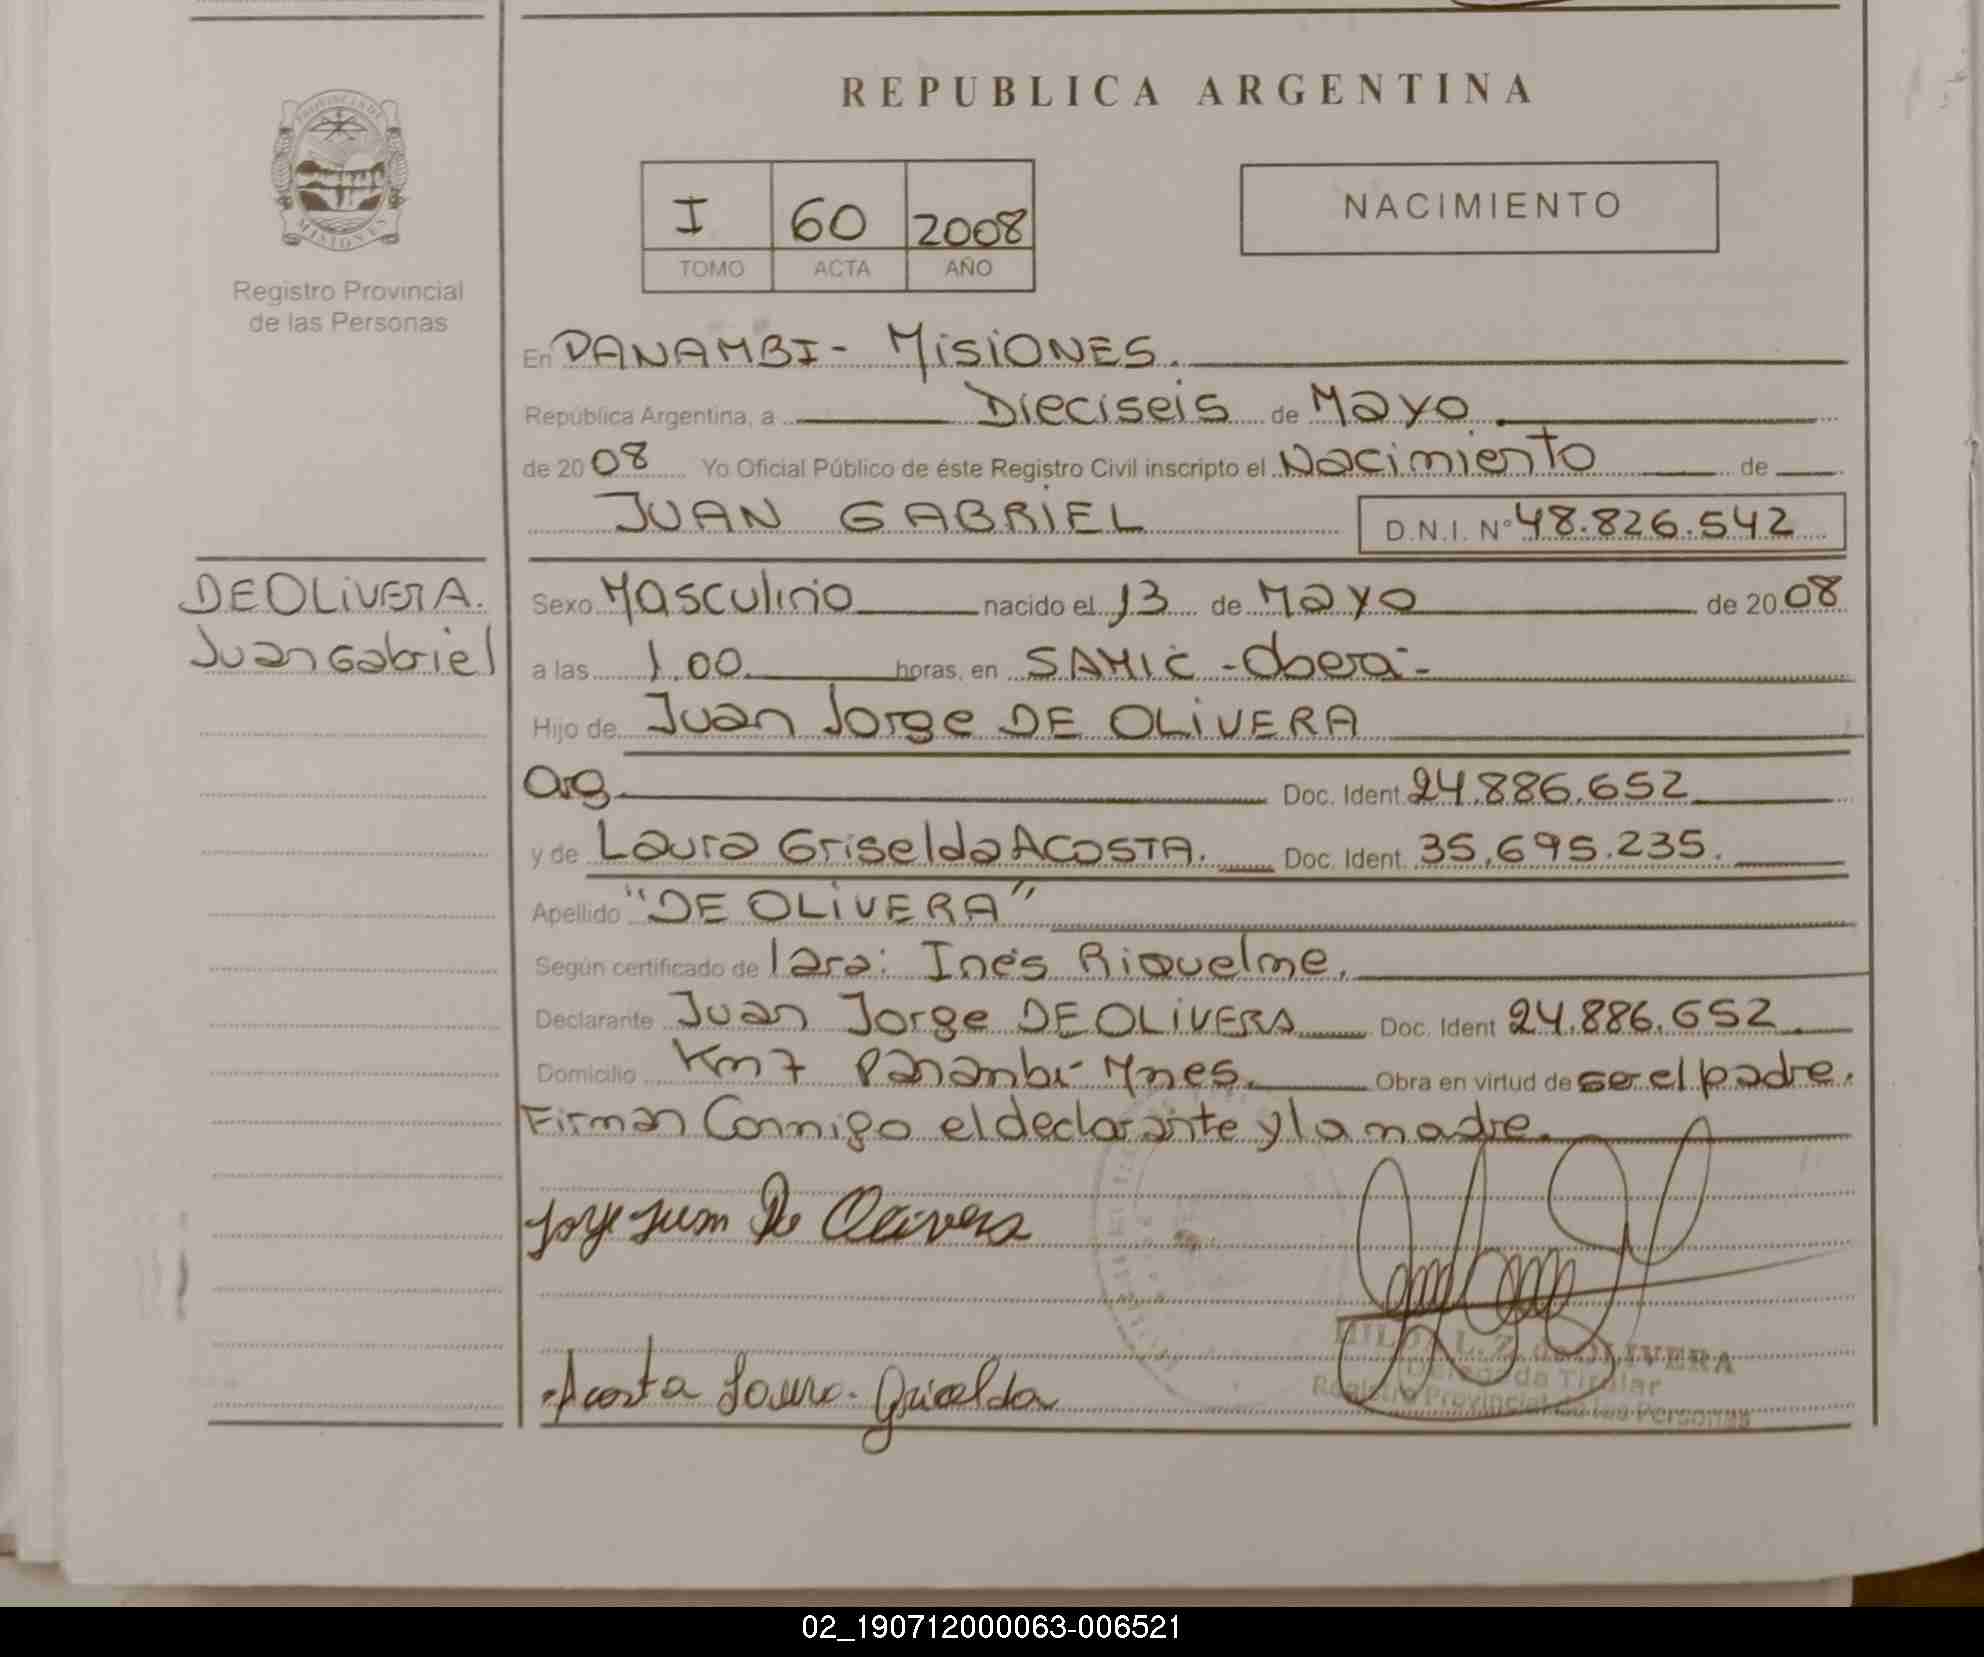 REPUBLICA ARGENTINA
PROVINCIA DE
MISIONES
Registro Provincial
de las Personas
I 60 2008
TOMO ACTA AÑO
NACIMIENTO
En PANAMBI - MISIONES.
República Argentina, a Dieciseis de Mayo
de 20 08 Yo Oficial Público de éste Registro Civil inscripto el Nacimiento de
JUAN GABRIEL D.N.I. Nº 48.826.542
DE OLIVERA.
Juan Gabriel
Sexo Masculino nacido el 13 de Mayo de 20 08
a las 1.00 horas, en SAMIC - Oberá -
Hijo de Juan Jorge DE OLIVERA
Arg Doc. Ident 24.886.652
y de Laura Griselda ACOSTA. Doc. Ident. 35.695.235.
Apellido "DE OLIVERA"
Según certificado de Inés Riquelme.
Declarante Juan Jorge DE OLIVERA Doc. Ident 24.886.652
Domicilio Km 7 Panambi - Mnes. Obra en virtud de ser el padre.
Firman Conmigo el declarante y la madre.
Jorge Juan De Olivera
L. Z. de OLIVERA
Delegada Titular
Registro Provincial de las Personas
Acosta Laura Griselda
02_190712000063-006521